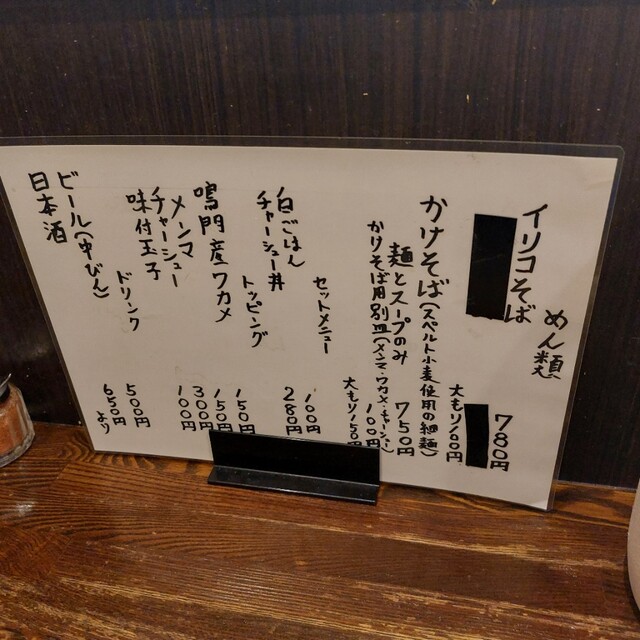 めん類
イリコそば 780円
大もり160円
かけそば(スペルト小麦使用の細麺)
麺とスープのみ 750円
かけそば用別皿(メンマ・ワカメ・チャーシュー) 100円
大もり150円
セットメニュー
白ごはん 100円
チャーシュー丼 280円
トッピング
鳴門産ワカメ 150円
メンマ 150円
チャーシュー 300円
味付玉子 100円
ドリンク
ビール(中びん) 500円
日本酒 650円より